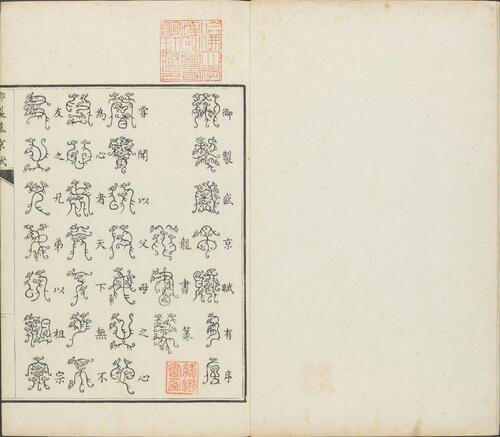 御製盛京賦有序
龍書篆
嘗聞以父母之心
為心者天下無不
友之兄弟以祖宗
御製盛京賦